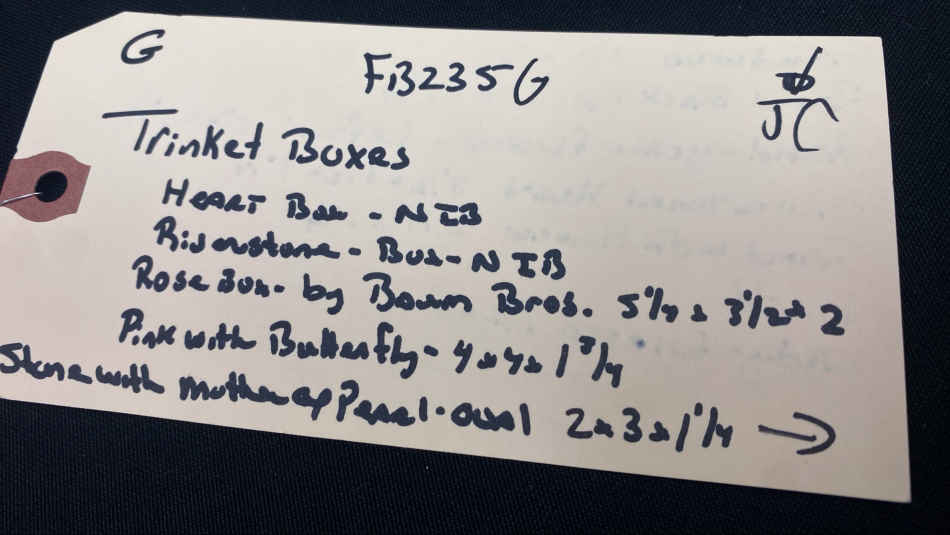 G
FB235G
JC
Trinket Boxes
Heart Box - NIB
Riverstone - Box - NIB
Rose Box - by Baum Bros. 5 1/4 x 3 1/2 x 2
Pink with Butterfly - 4 x 4 x 1 3/4
Stone with Mother of Pearl - oval 2 x 3 x 1 1/4 →